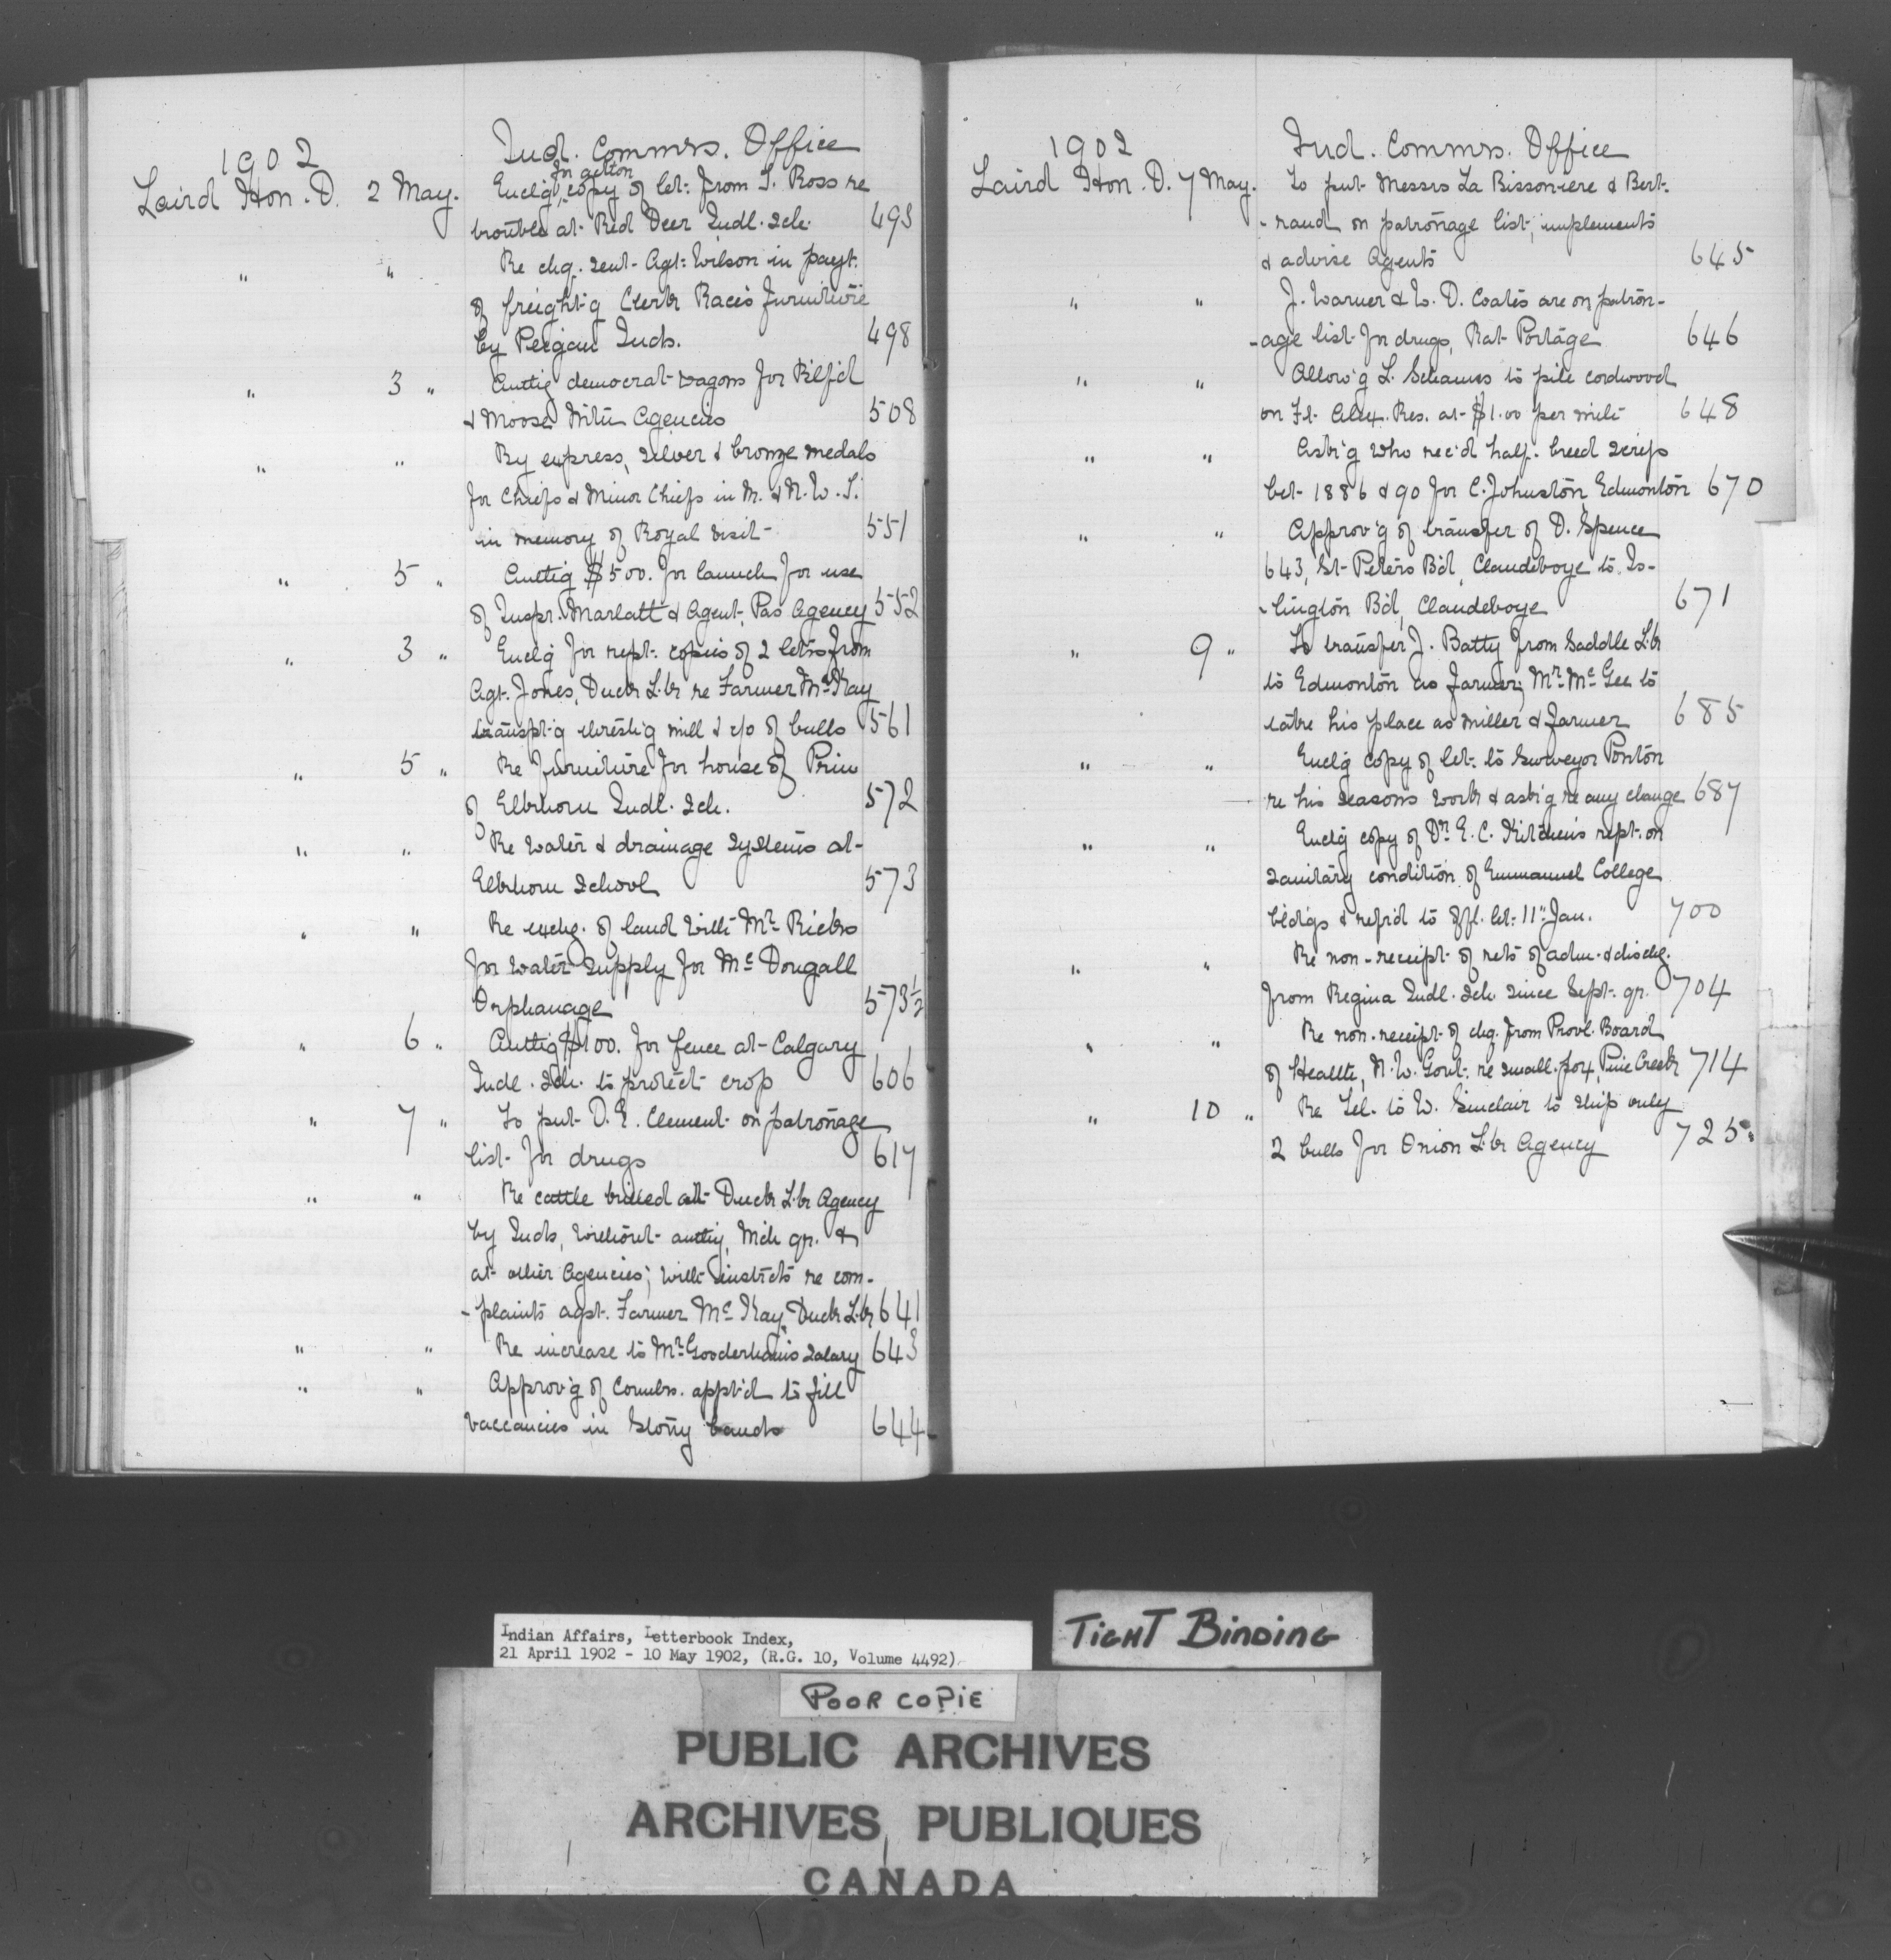 1902
Ind. Commrs. Office
Laird Hon. D. 2 May. Enclg for action copy of let: from J. Ross re
trouble at Red Deer Indl. Sch. 493
" " Re chq. sent Agt: Wilson in payt.
of freight'g Clerk Race's furniture
by Peigan Inds. 498
" 3 " Auttig democrat wagons for Btlf'd
& Moose Mtn Agencies 508
" " By express, silver & bronze medals
for Chiefs & Minor Chiefs in M. & N.W.T.
in memory of Royal visit 551
" 5 " Auttig $500. for launch for use
of Inspr. Marlatt & Agent, Pas Agency 552
" 3 " Enclg for rept: copies of 2 letrs from
Agt. Jones, Duck Lk re Farmer McKay
transpt'g thresh'g mill & c/o of bulls 561
" 5 " Re furniture for house of Prin
of Elkhorn Indl. Sch. 572
" " Re water & drainage systems at
Elkhorn School 573
" " Re exchg. of land with Mr Ricks
for water supply for McDougall
Orphanage 573½
" 6 " Auttig $100. for fence at Calgary
Indl. Sch. to protect crop 606
" 7 " To put D. E. Clement on patronage
list for drugs 617
" " Re cattle killed at Duck Lk Agency
by Inds, without auttig, Mch qr. &
at other Agencies; with instrcts re com-
-plaints agst. Farmer McKay, Duck Lk 641
" " Re increase to Mr Gooderham's salary 643
" " Approv'g of Counlrs. appt'd to fill
vaccancies in Stony bands 644
1902
Ind. Commrs. Office
Laird Hon. D. 7 May. To put Messrs La Bissoniere & Bert-
-rand on patronage list, implements
& advise Agents 645
" " J. Warner & W. D. Coates are on patron-
-age list for drugs, Rat Portage 646
" " Allow'g L. to pile cordwood
on Ft. Alex. Res. at $1.00 per mile 648
" " Ask'g who rec'd half-breed scrip
bet. 1886 & 90 for C. Johnston, Edmonton 670
" " Approv'g of transfer of D. Spence
643, St Peters B'd, Claudeboye to Is-
-lington B'd, Claudeboye 671
" 9 " To transfer J. Batty from Saddle Lk
to Edmonton as farmer; Mr McGee to
take his place as miller & farmer 685
" " Enclg copy of let: to Surveyor Ponton
re his seasons work & ask'g re any change 687
" " Enclg copy of Dr E. C. Kitchen's rept. on
sanitary condition of Emmanuel College
bld'gs & ref'd to offl. let: 11" Jan. 700
" " Re non-receipt of rets of adm. & dischg.
from Regina Indl. Sch. since Sept. qr. 704
" " Re non-receipt of chq. from Provl. Board
of Health, N.W. Govt: re small-pox, Pine Creek 714
" 10 " Re tel. to W. Sinclair to ship only
2 bulls for Onion Lk Agency 725
Indian Affairs, Letterbook Index,
21 April 1902 - 10 May 1902, (R.G. 10, Volume 4492)
TIGHT BINDING
POOR COPIE
PUBLIC ARCHIVES
ARCHIVES PUBLIQUES
CANADA